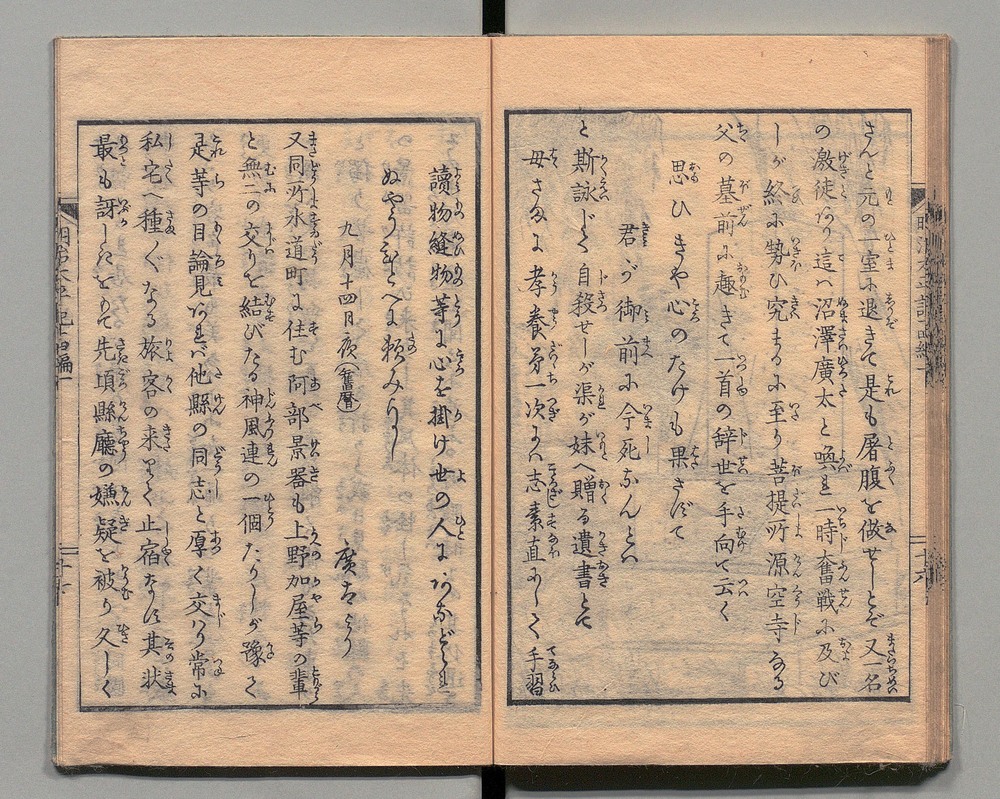 さんと元の一室に退きて是も屠腹を做せしとぞ又一名
の激徒あり這ハ沼澤廣太と喚れ一時奮戦に及び
しが終に勢ひ究まるに至り菩提所源空寺なる
父の墓前に趣きて一首の辞世を手向て云く
思ひきや心のたけも果さずて
君が御前に今死なんとハ
と斯詠じて自殺せしが渠が妹へ贈る遺書とて
母さまに孝養第一次にハ志素直にして手習
讀物縫物等に心を掛け世の人にあなどられ
ぬやうひとへに頼みり
九月十四日夜(舊暦)
廣太より
又同所水道町に住む阿部景器も上野加屋等の輩
と無二の交りを結びたる神風連の一個たりしが豫て
是等の目論見あれバ他縣の同志と厚く交ハり常に
私宅へ種々なる旅客の来りて止宿なせば其状
最も訝しきをもて先頃縣廳の嫌疑を被り久しく
明治太平記十四編一